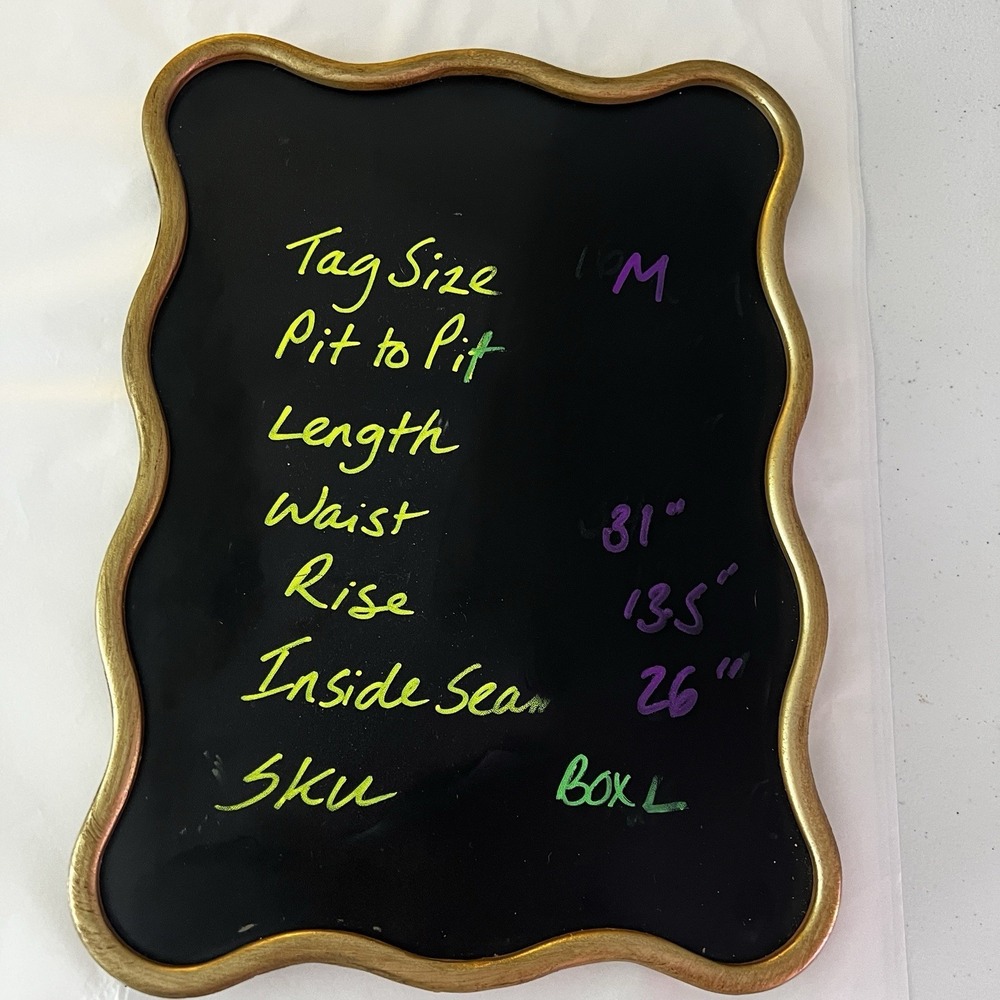 Tag Size M
Pit to Pit
Length
Waist 31"
Rise 13.5"
Inside Seam 26"
SKU BOX L